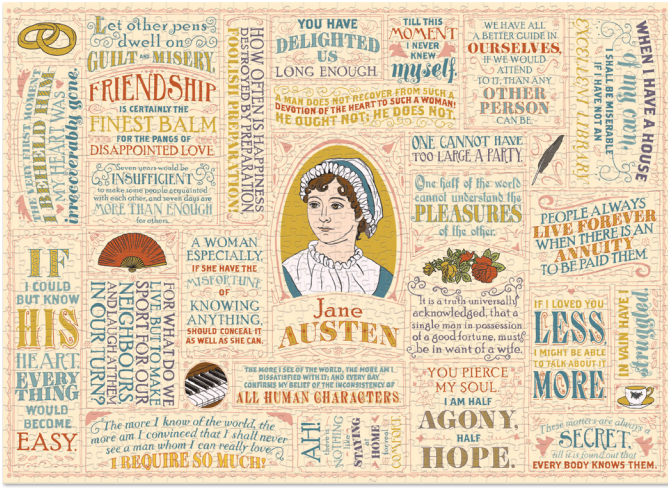 Let other pens
dwell on
GUILT and MISERY.
FRIENDSHIP
IS CERTAINLY THE
FINEST BALM
FOR THE PANGS OF
DISAPPOINTED LOVE.
THE VERY FIRST MOMENT
I BEHELD HIM,
MY HEART WAS
irrevocably gone.
Seven years would be
INSUFFICIENT
to make some people acquainted
with each other, and seven days are
MORE THAN ENOUGH
for others.
HOW OFTEN IS HAPPINESS
DESTROYED BY PREPARATION,
FOOLISH PREPARATION!
YOU HAVE
DELIGHTED
US
LONG ENOUGH.
TILL THIS
MOMENT
I NEVER
KNEW
myself.
A MAN DOES NOT RECOVER FROM SUCH A
DEVOTION OF THE HEART TO SUCH A WOMAN!
HE OUGHT NOT; HE DOES NOT.
WE HAVE ALL
A BETTER GUIDE IN
OURSELVES,
IF WE WOULD
ATTEND
TO IT, THAN ANY
OTHER
PERSON
CAN BE.
WHEN I HAVE A HOUSE
of my own,
I SHALL BE MISERABLE
IF I HAVE NOT AN
EXCELLENT LIBRARY.
ONE CANNOT HAVE
TOO LARGE A PARTY.
One half of the world
cannot understand the
PLEASURES
of the other.
PEOPLE ALWAYS
LIVE FOREVER
WHEN THERE IS AN
ANNUITY
TO BE PAID THEM.
Jane
AUSTEN
IF
I COULD
BUT KNOW
HIS
HEART,
EVERY
THING
WOULD
BECOME
EASY.
FOR WHAT DO WE
LIVE, BUT TO MAKE
SPORT FOR OUR
NEIGHBOURS,
AND LAUGH AT THEM
IN OUR TURN?
A WOMAN
ESPECIALLY,
IF SHE HAVE THE
MISFORTUNE
OF
KNOWING
ANYTHING,
SHOULD CONCEAL IT
AS WELL AS SHE CAN.
It is a truth universally
acknowledged, that a
single man in possession
of a good fortune, must
be in want of a wife.
IF I LOVED YOU
LESS,
I MIGHT BE ABLE
TO TALK ABOUT IT
MORE.
IN VAIN HAVE I
struggled.
THE MORE I SEE OF THE WORLD, THE MORE AM I
DISSATISFIED WITH IT; AND EVERY DAY
CONFIRMS MY BELIEF OF THE INCONSISTENCY OF
ALL HUMAN CHARACTERS.
YOU PIERCE
MY SOUL.
I AM HALF
AGONY,
HALF
HOPE.
The more I know of the world, the
more am I convinced that I shall never
see a man whom I can really love.
I REQUIRE SO MUCH!
AH!
there is
NOTHING
like
STAYING
at
HOME
for real
COMFORT.
These matters are always a
SECRET,
till it is found out that
EVERY BODY KNOWS THEM.